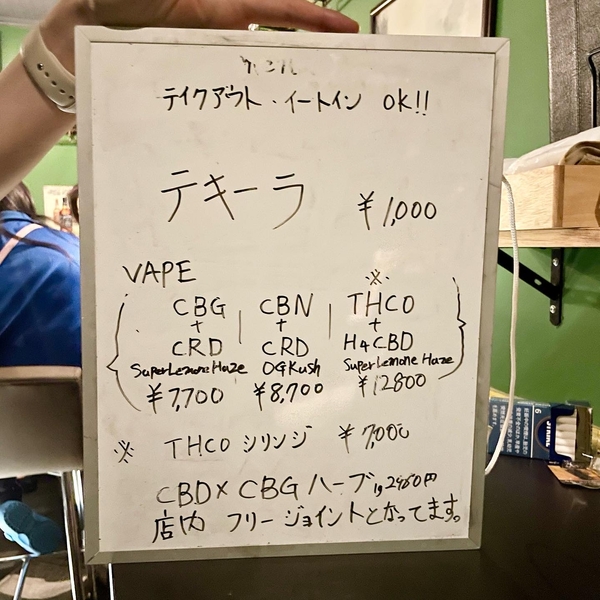 テイクアウト・イートイン OK!!
テキーラ ¥1,000
VAPE
※
CBG CBN THCO
+ + +
CRD CRD H4CBD
SuperLemoneHaze OGKush SuperLemoneHaze
¥7,700 ¥8,700 ¥12800
※ THCO シリンジ ¥7,000
CBD×CBG ハーブ
店内 フリージョイントとなってます。